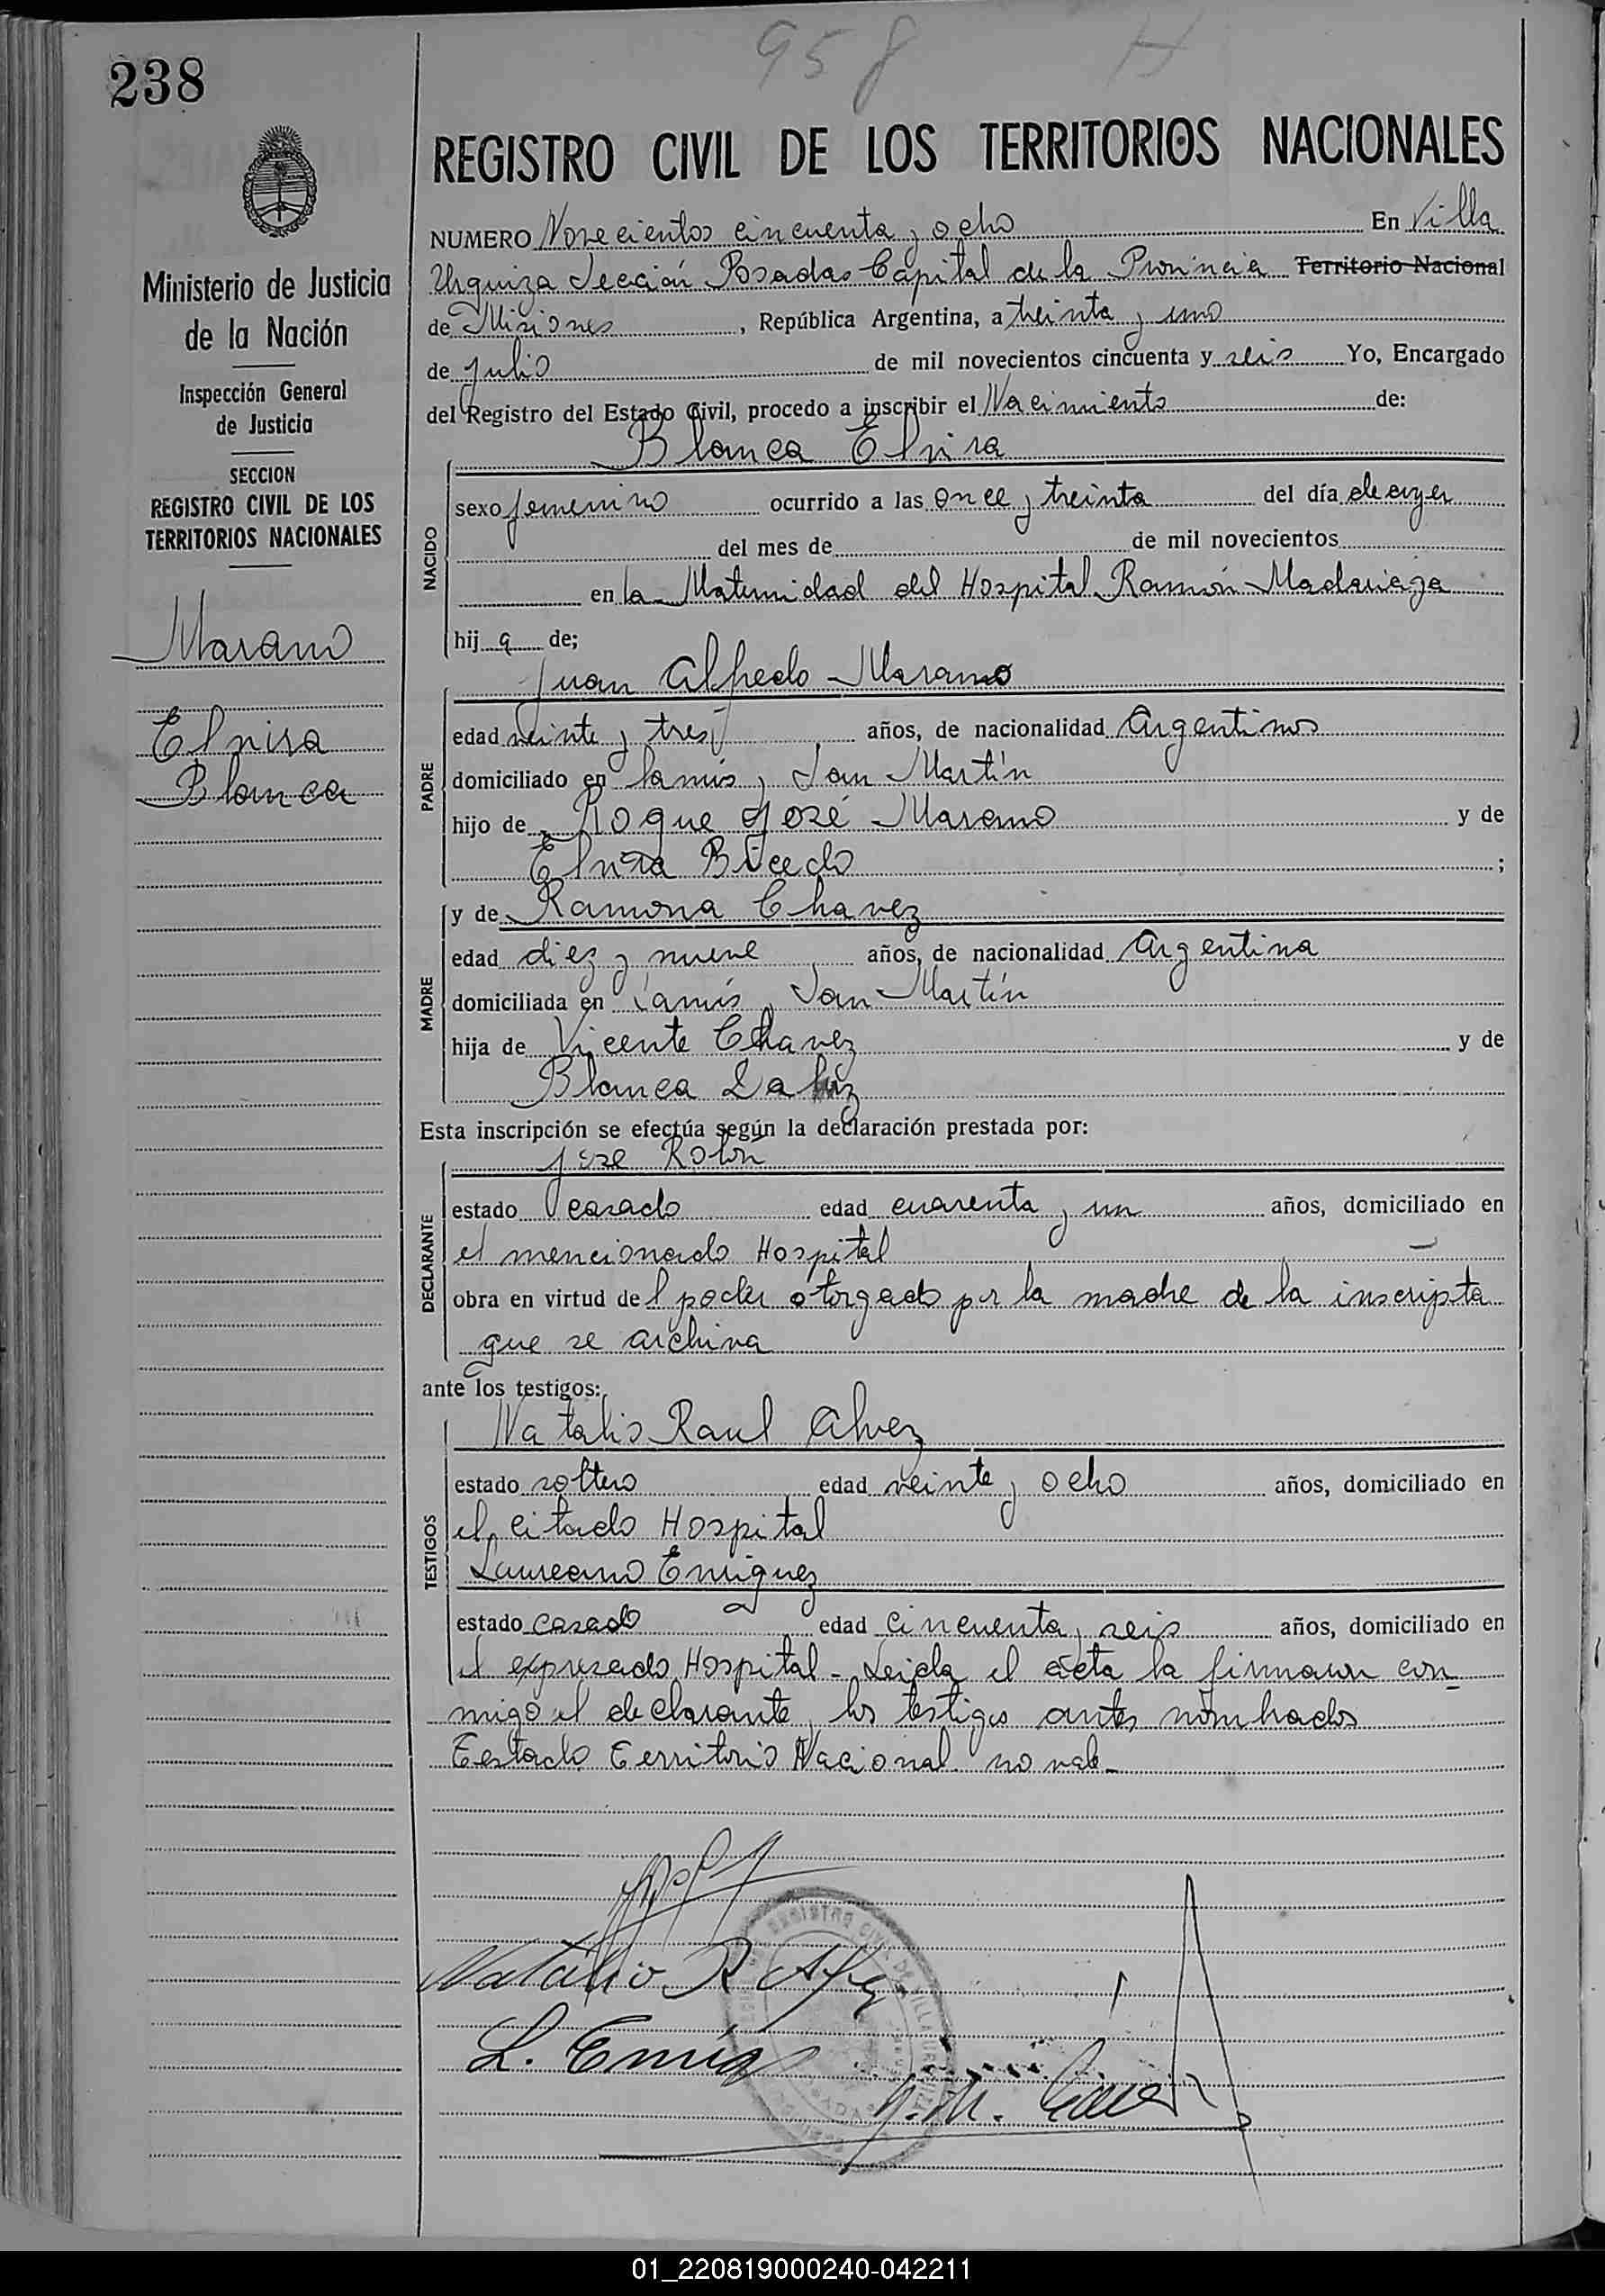 958 H
238
REGISTRO CIVIL DE LOS TERRITORIOS NACIONALES
Ministerio de Justicia
de la Nación
Inspección General
de Justicia
SECCION
REGISTRO CIVIL DE LOS
TERRITORIOS NACIONALES
Marano
Elvira
Blanca
NUMERO Novecientos cincuenta y ocho En Villa
Urquiza Sección Posadas Capital de la Provincia Territorio Nacional
de Misiones, República Argentina, a treinta y uno
de julio de mil novecientos cincuenta y seis Yo, Encargado
del Registro del Estado Civil, procedo a inscribir el Nacimiento de:
Blanca Elvira
NACIDO
sexo femenino ocurrido a las once y treinta del día de ayer
del mes de de mil novecientos
en la Maternidad del Hospital Ramón Madariaga
hij a de;
Juan Alfredo Marano
PADRE
edad veinte y tres años, de nacionalidad Argentino
domiciliado en Lanús, San Martín
hijo de Roque José Marano y de
Elvira ;
y de Ramona Chavez
MADRE
edad diez y nueve años, de nacionalidad Argentina
domiciliada en Lanús, San Martín
hija de Vicente Chavez y de
Blanca
Esta inscripción se efectúa según la declaración prestada por:
José Rolón
DECLARANTE
estado casado edad cuarenta y un años, domiciliado en
el mencionado Hospital
obra en virtud del poder otorgado por la madre de la inscripta
que se archiva
ante los testigos:
Natalio Raul Alvez
TESTIGOS
estado soltero edad veinte y ocho años, domiciliado en
el citado Hospital
Laureano Enriguez
estado casado edad cincuenta y seis años, domiciliado en
el expresado Hospital - Leida el acta la firmaron con
migo el declarante y los testigos antes nombrados
Testado Territorio Nacional no vale -
Natalio R Alvez
L. Enrig
01_220819000240-042211